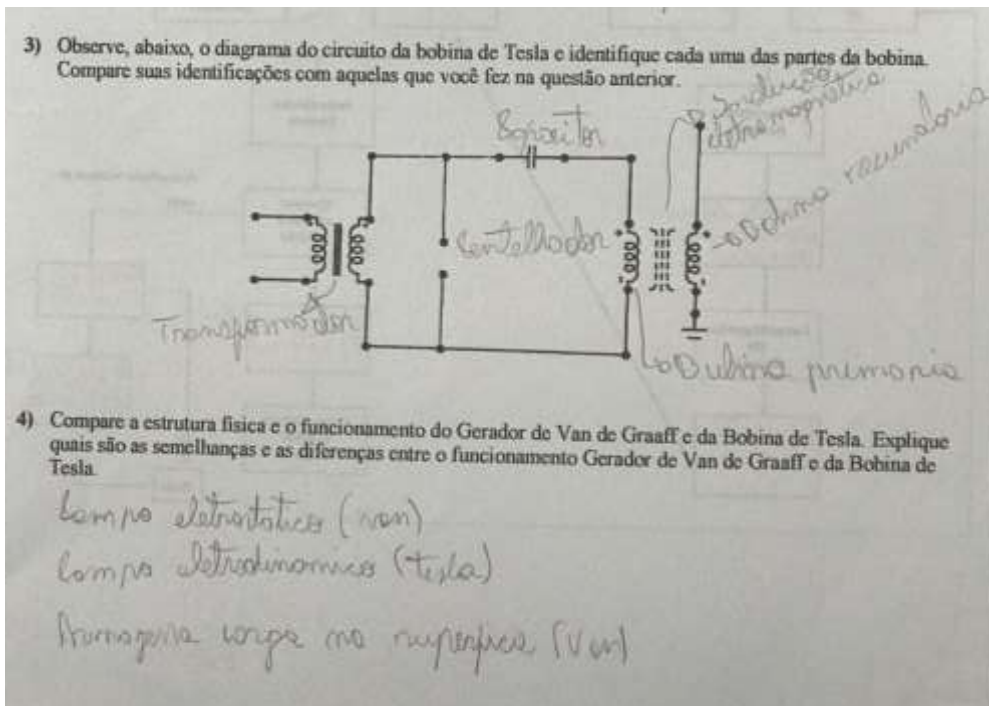 3) Observe, abaixo, o diagrama do circuito da bobina de Tesla e identifique cada uma das partes da bobina.
Compare suas identificações com aquelas que você fez na questão anterior.
Indução
eletromagnética
Capacitor
Bobina secundaria
Centelhador
Transformador
Bubina primaria
4) Compare a estrutura física e o funcionamento do Gerador de Van de Graaff e da Bobina de Tesla. Explique
quais são as semelhanças e as diferenças entre o funcionamento Gerador de Van de Graaff e da Bobina de
Tesla.
Campo eletrostatico (van)
Campo eletrodinamico (tesla)
Armazena carga na superficie (Van)